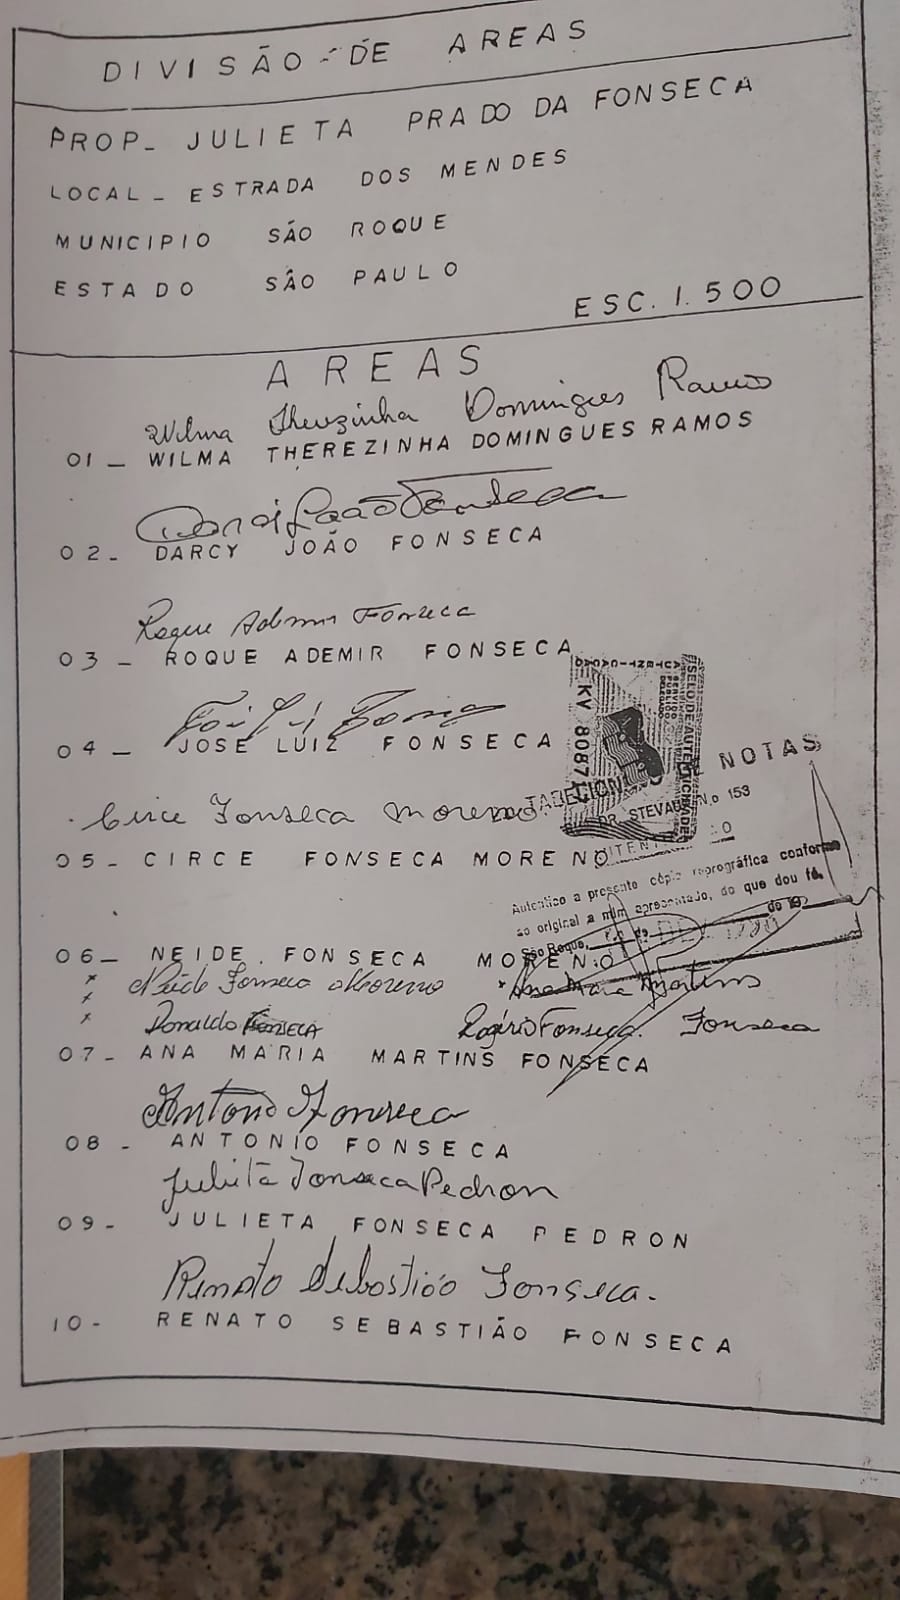 DIVISÃO - DE AREAS
PROP- JULIETA PRADO DA FONSECA
LOCAL - ESTRADA DOS MENDES
MUNICIPIO SÃO ROQUE
ESTADO SÃO PAULO
ESC. 1. 500
AREAS
Wilma Therezinha Domingues Ramos
01 - WILMA THEREZINHA DOMINGUES RAMOS
Darci João Fonseca
02 - DARCY JOÃO FONSECA
Roque Ademir Fonseca
03 - ROQUE ADEMIR FONSECA
SELO DE AUTENTICIDADE
AUTENTICAÇÃO
KV 8087
04 - JOSE LUIZ FONSECA
NOTAS
DR. STEVAUX N.o 153
Circe Fonseca Moreno
05 - CIRCE FONSECA MORENO
Autentico a presente cópia reprográfica conforme
ao original a mim apresentado, do que dou fé.
São Roque, de 19
06 - NEIDE FONSECA MORENO
Neide Fonseca Moreno Ana Maria Martins
Donaldo Fonseca Rogério Fonseca. Fonseca
07 - ANA MARIA MARTINS FONSECA
Antonio Fonseca
08 - ANTONIO FONSECA
Julieta Fonseca Pedron
09 - JULIETA FONSECA PEDRON
Renato Sebastião Fonseca.
10 - RENATO SEBASTIÃO FONSECA